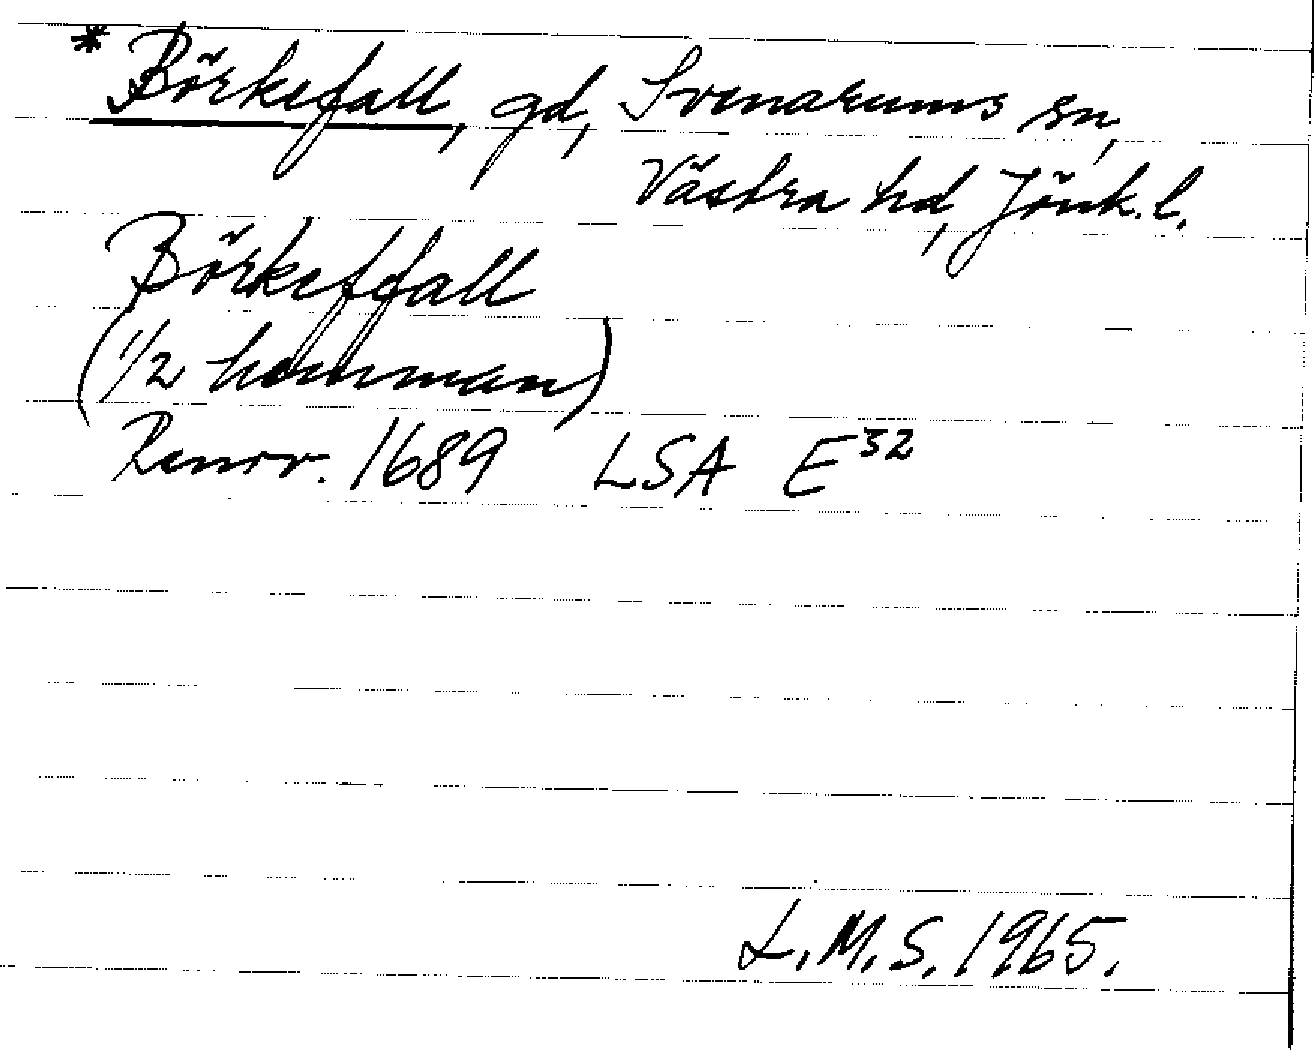 * Börkefall, gd, Svenarums sn,
Västra hd, Jönk. l.
Börkeffall
(1/2 hemman)
Renov. 1689 LSA E32
L.M.S. 1965.